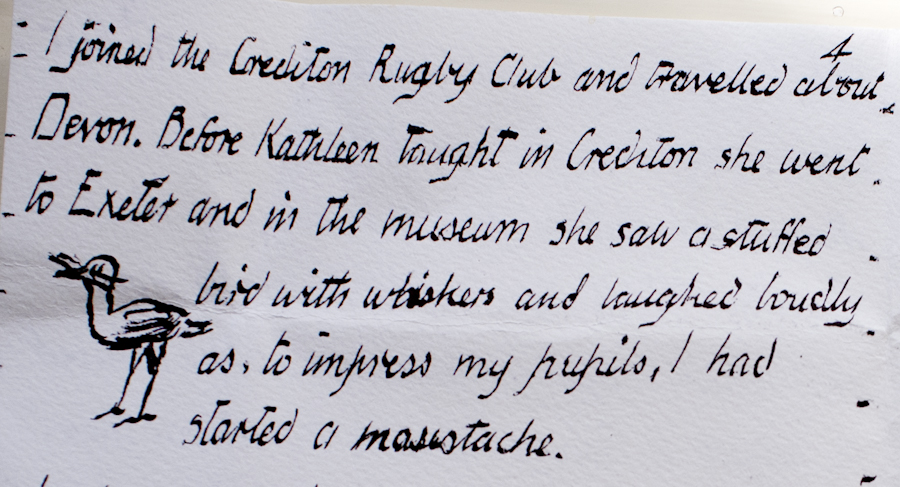 4
I joined the Crediton Rugby Club and travelled about
Devon. Before Kathleen taught in Crediton she went
to Exeter and in the museum she saw a stuffed
bird with whiskers and laughed loudly
as, to impress my pupils, I had
started a moustache.